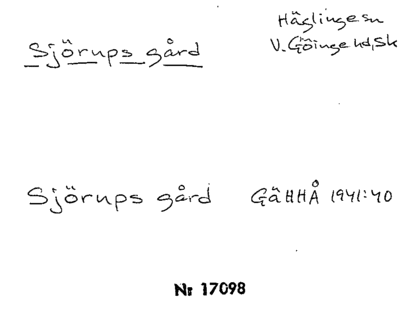 Sjörups gård
Häglinge sn
V. Göinge hd, Sk
Sjörups gård GäHHÅ 1941:40
Nr 17098